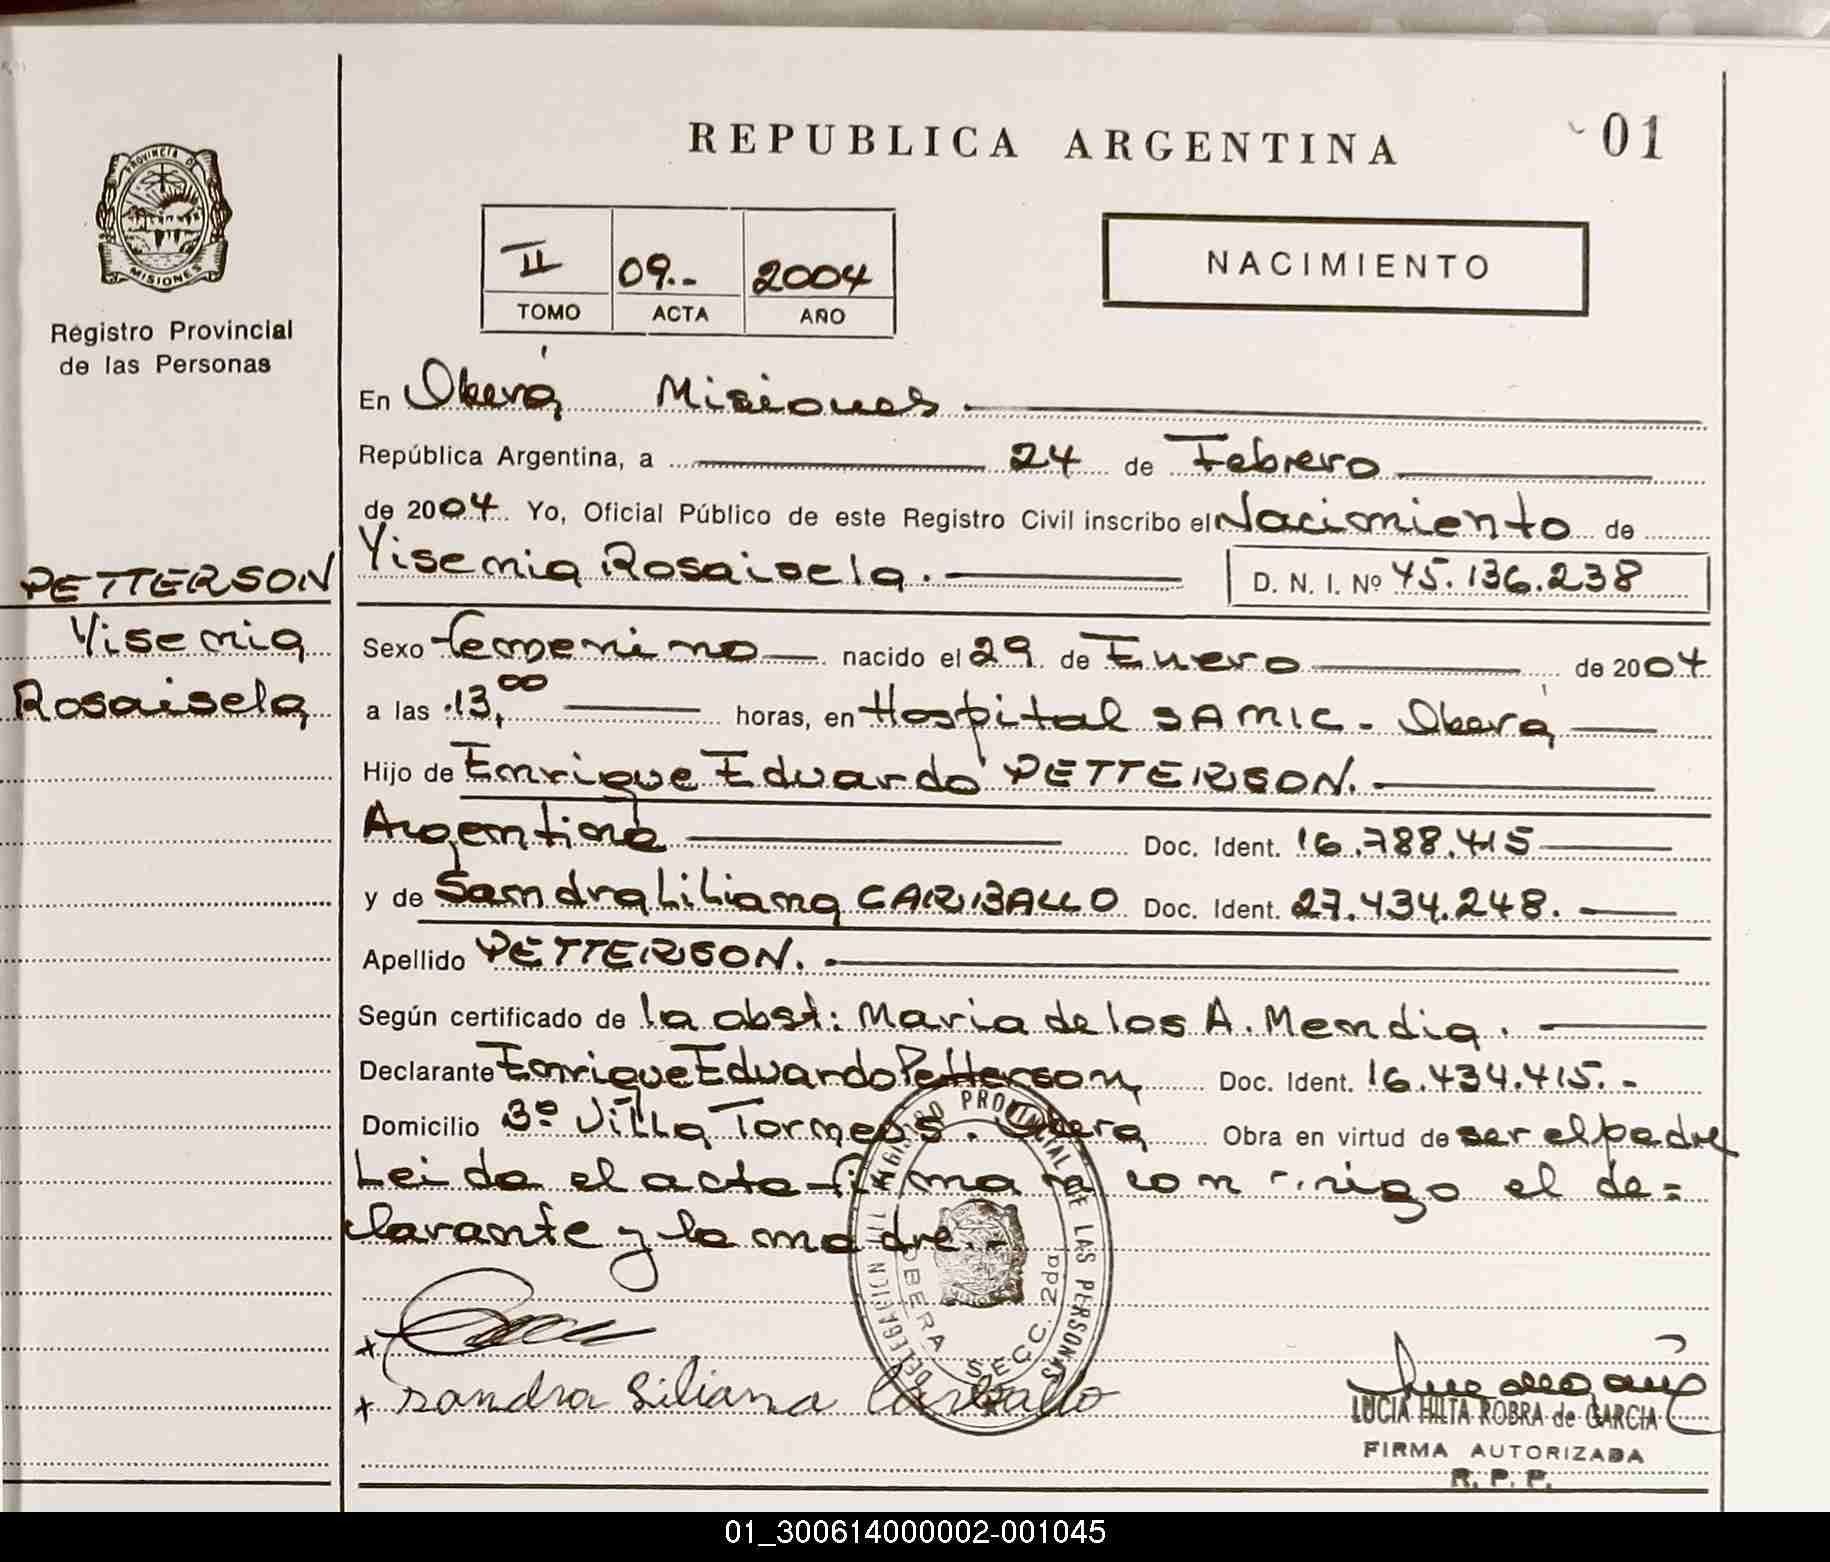 REPUBLICA ARGENTINA
01
PROVINCIA D
MISIONES
Registro Provincial
de las Personas
II 09.- 2004
TOMO ACTA AÑO
NACIMIENTO
En Oberá Misiones
República Argentina, a 24 de Febrero
de 2004 Yo, Oficial Público de este Registro Civil inscribo el Nacimiento de
Yisemia Rosaisela. D. N. I. Nº 45.136.238
PETTERSON
Yisemia
Rosaisela
Sexo femenino nacido el 29 de Enero de 2004
a las 13,00 horas, en Hospital SAMIC - Oberá
Hijo de Enrique Eduardo PETTERSON.
Argentina Doc. Ident. 16.788.415
y de Sandra Liliana CARBALLO Doc. Ident. 27.434.248.
Apellido PETTERSON.
Según certificado de la obst: Maria de los A. Mendia.
Declarante Enrique Eduardo Petterson, Doc. Ident. 16.434.415.-
Domicilio 3º Villa Torneos. Oberá Obra en virtud de ser el padre
Leida el acta firmara conmigo el de=
clarante y la madre.-
REGISTRO PROVINCIAL DE LAS PERSONAS
DELEGACION
OBERA SECC. 2da
x
x Sandra Liliana Carballo
LUCIA HILTA ROBRA de GARCIA
FIRMA AUTORIZADA
R. P. P.
01_300614000002-001045